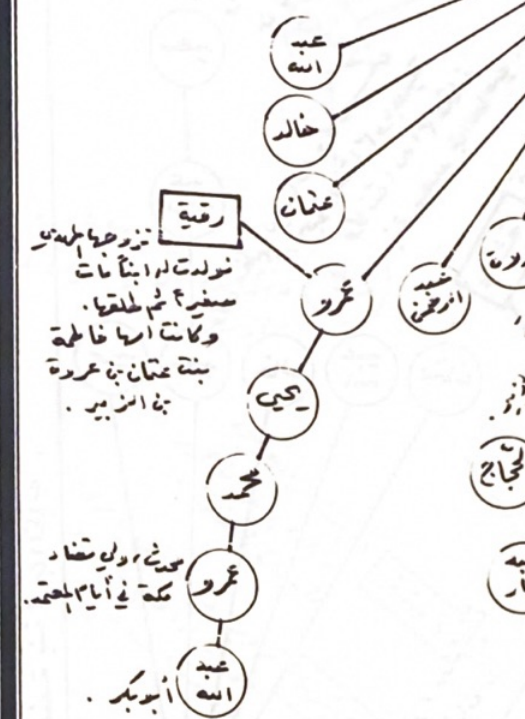 عبد
الله
خالد
عثمان
رقية
تزوجها المهدي
فولدت له ابناً مات
صغيراً ثم طلقها.
وكانت أمها فاطمة
بنت عثمان بن عروة
بن الزبير.
عمرو
عبد
الرحمن
يحيى
محمد
عمرو
محدث، ولي قضاء
مكة في أيام المعتمد.
عبد
الله
أبو بكر.
الحجاج